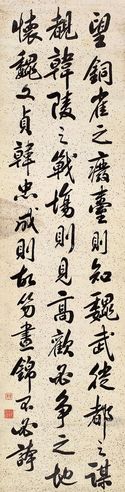 望銅雀之廢臺則知魏武從都之謀
覩韓陵之戰塲則見高歡必争之地
懷魏文貞韓忠成則故笏晝錦不必誇